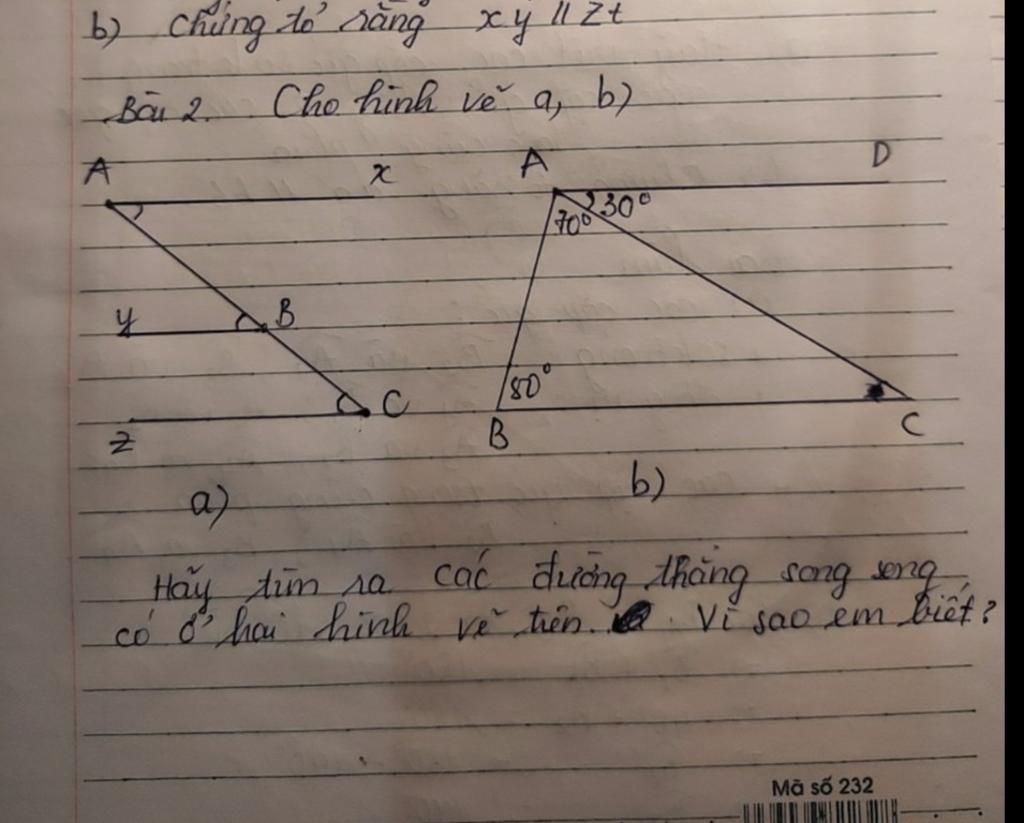 b) Chứng tỏ rằng xy // zt
Bài 2. Cho hình vẽ a, b)
A x A D
70° 30°
y B
80°
z C B C
a) b)
Hãy tìm ra các đường thẳng song song
có ở hai hình vẽ trên. Vì sao em biết?
Mã số 232